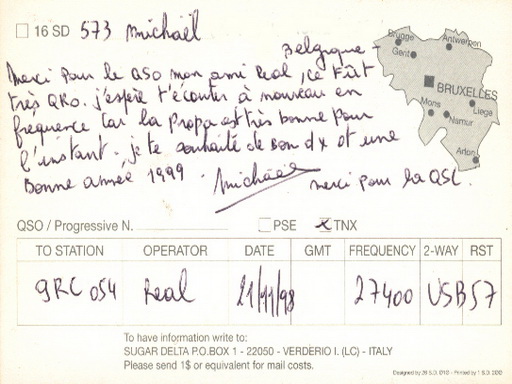 16 SD 573 Michaël
Belgique -
Merci pour le QSO mon ami Real, ce fût
très QRO. j'espère t'écouter à nouveau en
fréquence car la propa est très bonne pour
l'instant. je te souhaite de bon dx et une
Bonne année 1999. Michael merci pour la QSL.
Brugge
Antwerpen
Gent
BRUXELLES
Mons
Liege
Namur
Arlon
QSO / Progressive N. PSE x TNX
TO STATION OPERATOR DATE GMT FREQUENCY 2-WAY RST
9RC 054 Real 21/11/98 27400 USB 57
To have information write to:
SUGAR DELTA P.O.BOX 1 - 22050 - VERDERIO I. (LC) - ITALY
Please send 1$ or equivalent for mail costs.